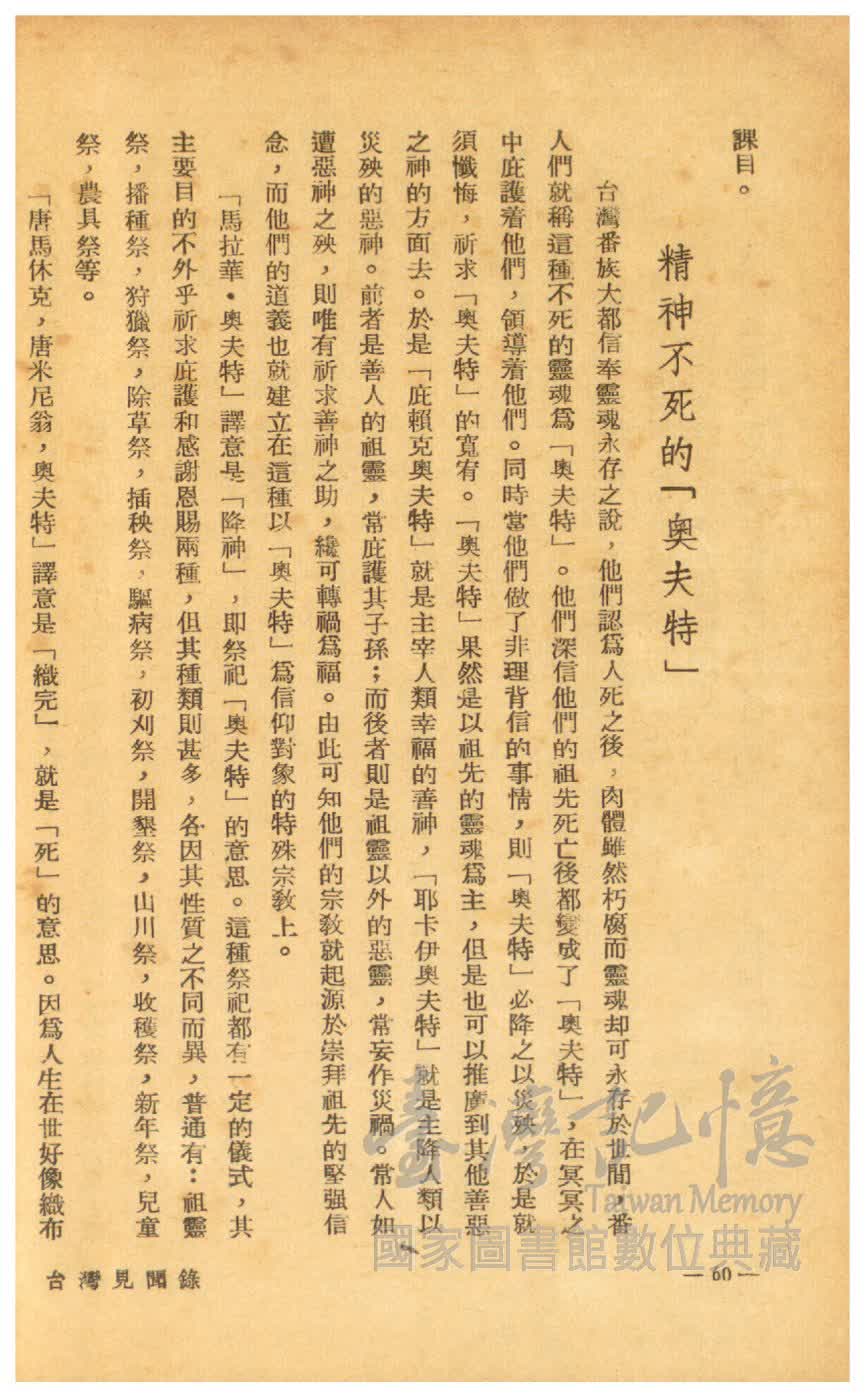 課目。
精神不死的「奧夫特」
台灣番族大都信奉靈魂永存之說，他們認爲人死之後，肉體雖然朽腐而靈魂却可永存於世間，番
人們就稱這種不死的靈魂爲「奧夫特」。他們深信他們的祖先死亡後都變成了「奧夫特」，在冥冥之
中庇護着他們，領導着他們。同時當他們做了非理背信的事情，則「奧夫特」必降之以災殃，於是就
須懺悔，祈求「奧夫特」的寬宥。「奧夫特」果然是以祖先的靈魂爲主，但是也可以推廣到其他善惡
之神的方面去。於是「庇賴克奧夫特」就是主宰人類幸福的善神，「耶卡伊奧夫特」就是主降人類以
災殃的惡神。前者是善人的祖靈，常庇護其子孫；而後者則是祖靈以外的惡靈，常妄作災禍。常人如
遭惡神之殃，則唯有祈求善神之助，纔可轉禍爲福。由此可知他們的宗教就起源於崇拜祖先的堅强信
念，而他們的道義也就建立在這種以「奧夫特」爲信仰對象的特殊宗教上。
「馬拉華・奧夫特」譯意是「降神」，即祭祀「奧夫特」的意思。這種祭祀都有一定的儀式，其
主要目的不外乎祈求庇護和感謝恩賜兩種，但其種類則甚多，各因其性質之不同而異，普通有：祖靈
祭，播種祭，狩獵祭，除草祭，插秧祭，驅病祭，初刈祭，開墾祭，山川祭，收穫祭，新年祭，兒童
祭，農具祭等。
「唐馬休克，唐米尼翁，奧夫特」譯意是「織完」，就是「死」的意思。因爲人生在世好像織布
台灣見聞錄
— 60 —
臺灣記憶
Taiwan Memory
國家圖書館數位典藏